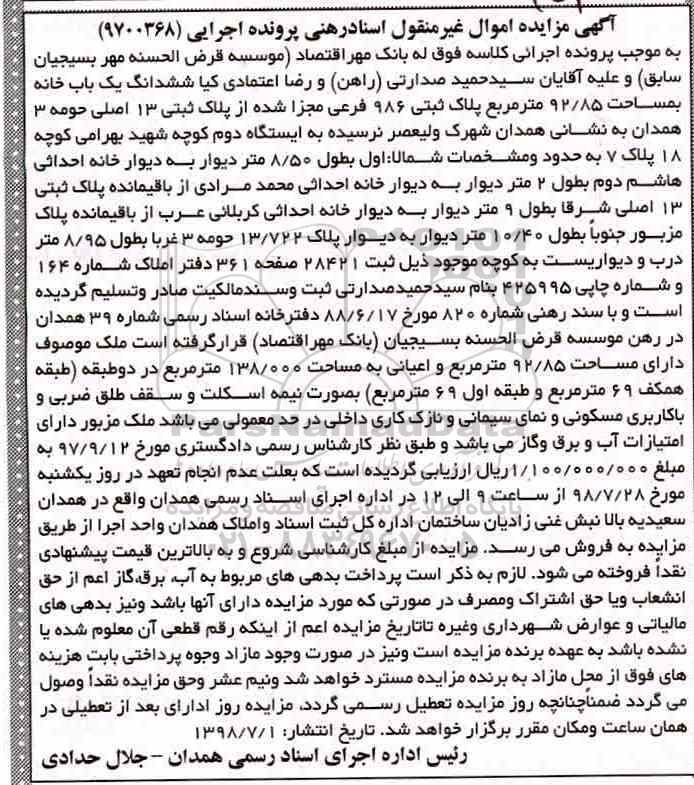 آگهی مزایده اموال غیرمنقول اسنادرهنی پرونده اجرایی (۹۷۰۰۳۶۸)
به موجب پرونده اجرائی کلاسه فوق له بانک مهراقتصاد (موسسه قرض الحسنه مهر بسیجیان
سابق) و علیه آقایان سیدحمید صدارتی (راهن) و رضا اعتمادی کیا ششدانگ یک باب خانه
بمساحت ۹۲/۸۵ مترمربع پلاک ثبتی ۹۸۶ فرعی مجزا شده از پلاک ثبتی ۱۳ اصلی حومه ۳
همدان به نشانی همدان شهرک ولیعصر نرسیده به ایستگاه دوم کوچه شهید بهرامی کوچه
۱۸ پلاک ۷ به حدود ومشخصات شمالا:اول بطول ۸/۵۰ متر دیوار به دیوار خانه احداثی
هاشم دوم بطول ۲ متر دیوار به دیوار خانه احداثی محمد مرادی از باقیمانده پلاک ثبتی
۱۳ اصلی شرقا بطول ۹ متر دیوار به دیوار خانه احداثی کربلائی عرب از باقیمانده پلاک
مزبور جنوباً بطول ۱۰/۴۰ متر دیوار به دیوار پلاک ۱۳/۷۲۲ حومه ۳ غربا بطول ۸/۹۵ متر
درب و دیواریست به کوچه موجود ذیل ثبت ۲۸۴۲۱ صفحه ۳۶۱ دفتر املاک شماره ۱۶۴
و شماره چاپی ۴۲۵۹۹۵ بنام سیدحمیدصدارتی ثبت وسندمالکیت صادر وتسلیم گردیده
است و با سند رهنی شماره ۸۲۰ مورخ ۸۸/۶/۱۷ دفترخانه اسناد رسمی شماره ۳۹ همدان
در رهن موسسه قرض الحسنه بسیجیان (بانک مهراقتصاد) قرارگرفته است ملک موصوف
دارای مساحت ۹۲/۸۵ مترمربع و اعیانی به مساحت ۱۳۸/۰۰۰ مترمربع در دوطبقه (طبقه
همکف ۶۹ مترمربع و طبقه اول ۶۹ مترمربع) بصورت نیمه اسکلت و سقف طلق ضربی و
باکاربری مسکونی و نمای سیمانی و نازک کاری داخلی در حد معمولی می باشد ملک مزبور دارای
امتیازات آب و برق وگاز می باشد و طبق نظر کارشناس رسمی دادگستری مورخ ۹۷/۹/۱۲ به
مبلغ ۱/۱۰۰/۰۰۰/۰۰۰ریال ارزیابی گردیده است که بعلت عدم انجام تعهد در روز یکشنبه
مورخ ۹۸/۷/۲۸ از ساعت ۹ الی ۱۲ در اداره اجرای اسناد رسمی همدان واقع در همدان
سعیدیه بالا نبش غنی زادیان ساختمان اداره کل ثبت اسناد واملاک همدان واحد اجرا از طریق
مزایده به فروش می رسد. مزایده از مبلغ کارشناسی شروع و به بالاترین قیمت پیشنهادی
نقداً فروخته می شود. لازم به ذکر است پرداخت بدهی های مربوط به آب، برق،گاز اعم از حق
انشعاب ویا حق اشتراک ومصرف در صورتی که مورد مزایده دارای آنها باشد ونیز بدهی های
مالیاتی و عوارض شهرداری وغیره تاتاریخ مزایده اعم از اینکه رقم قطعی آن معلوم شده یا
نشده باشد به عهده برنده مزایده است ونیز در صورت وجود مازاد وجوه پرداختی بابت هزینه
های فوق از محل مازاد به برنده مزایده مسترد خواهد شد ونیم عشر وحق مزایده نقداً وصول
می گردد ضمناًچنانچه روز مزایده تعطیل رسمی گردد، مزایده روز ادارای بعد از تعطیلی در
همان ساعت ومکان مقرر برگزار خواهد شد. تاریخ انتشار: ۱۳۹۸/۷/۱
رئیس اداره اجرای اسناد رسمی همدان – جلال حدادی
ParsNamadData
پایگاه اطلاع رسانی مناقصه و مزایده
۰۲۱-۸۸۳۴۹۶۷۰-۵